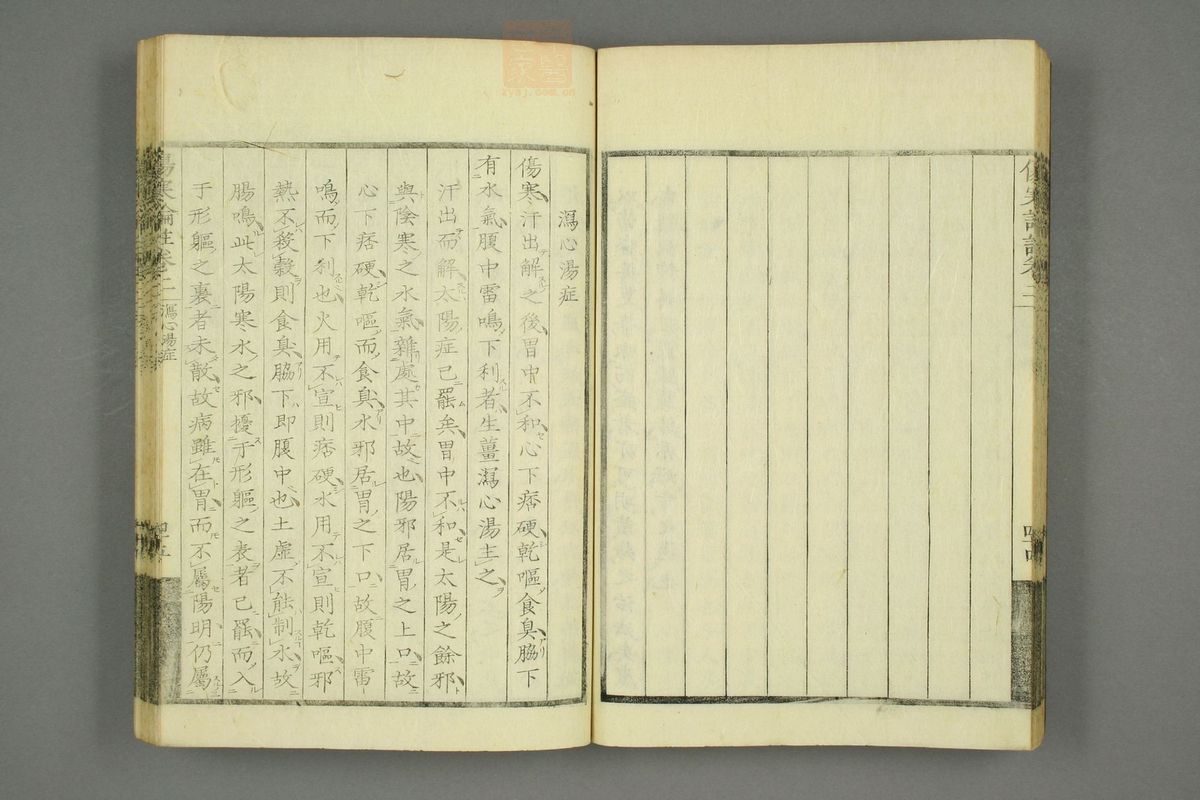 傷寒論註卷二
四十四
瀉心湯症
傷寒汗出解之後胃中不和心下痞硬乾嘔食臭脇下
有水氣腹中雷鳴下利者生薑瀉心湯主之
汗出而解太陽症已罷矣胃中不和是太陽之餘邪
與陰寒之水氣雜處其中故也陽邪居胃之上口故
心下痞硬乾嘔而食臭水邪居胃之下口故腹中雷
鳴而下利也火用不宣則痞硬水用不宣則乾嘔邪
熱不殺穀則食臭脇下即腹中也土虛不能制水故
腸鳴此太陽寒水之邪擾于形軀之表者已罷而入
于形軀之裏者未散故病雖在胃而不屬陽明仍屬
傷寒論註卷二 瀉心湯症
四十五
zysj.com.cn